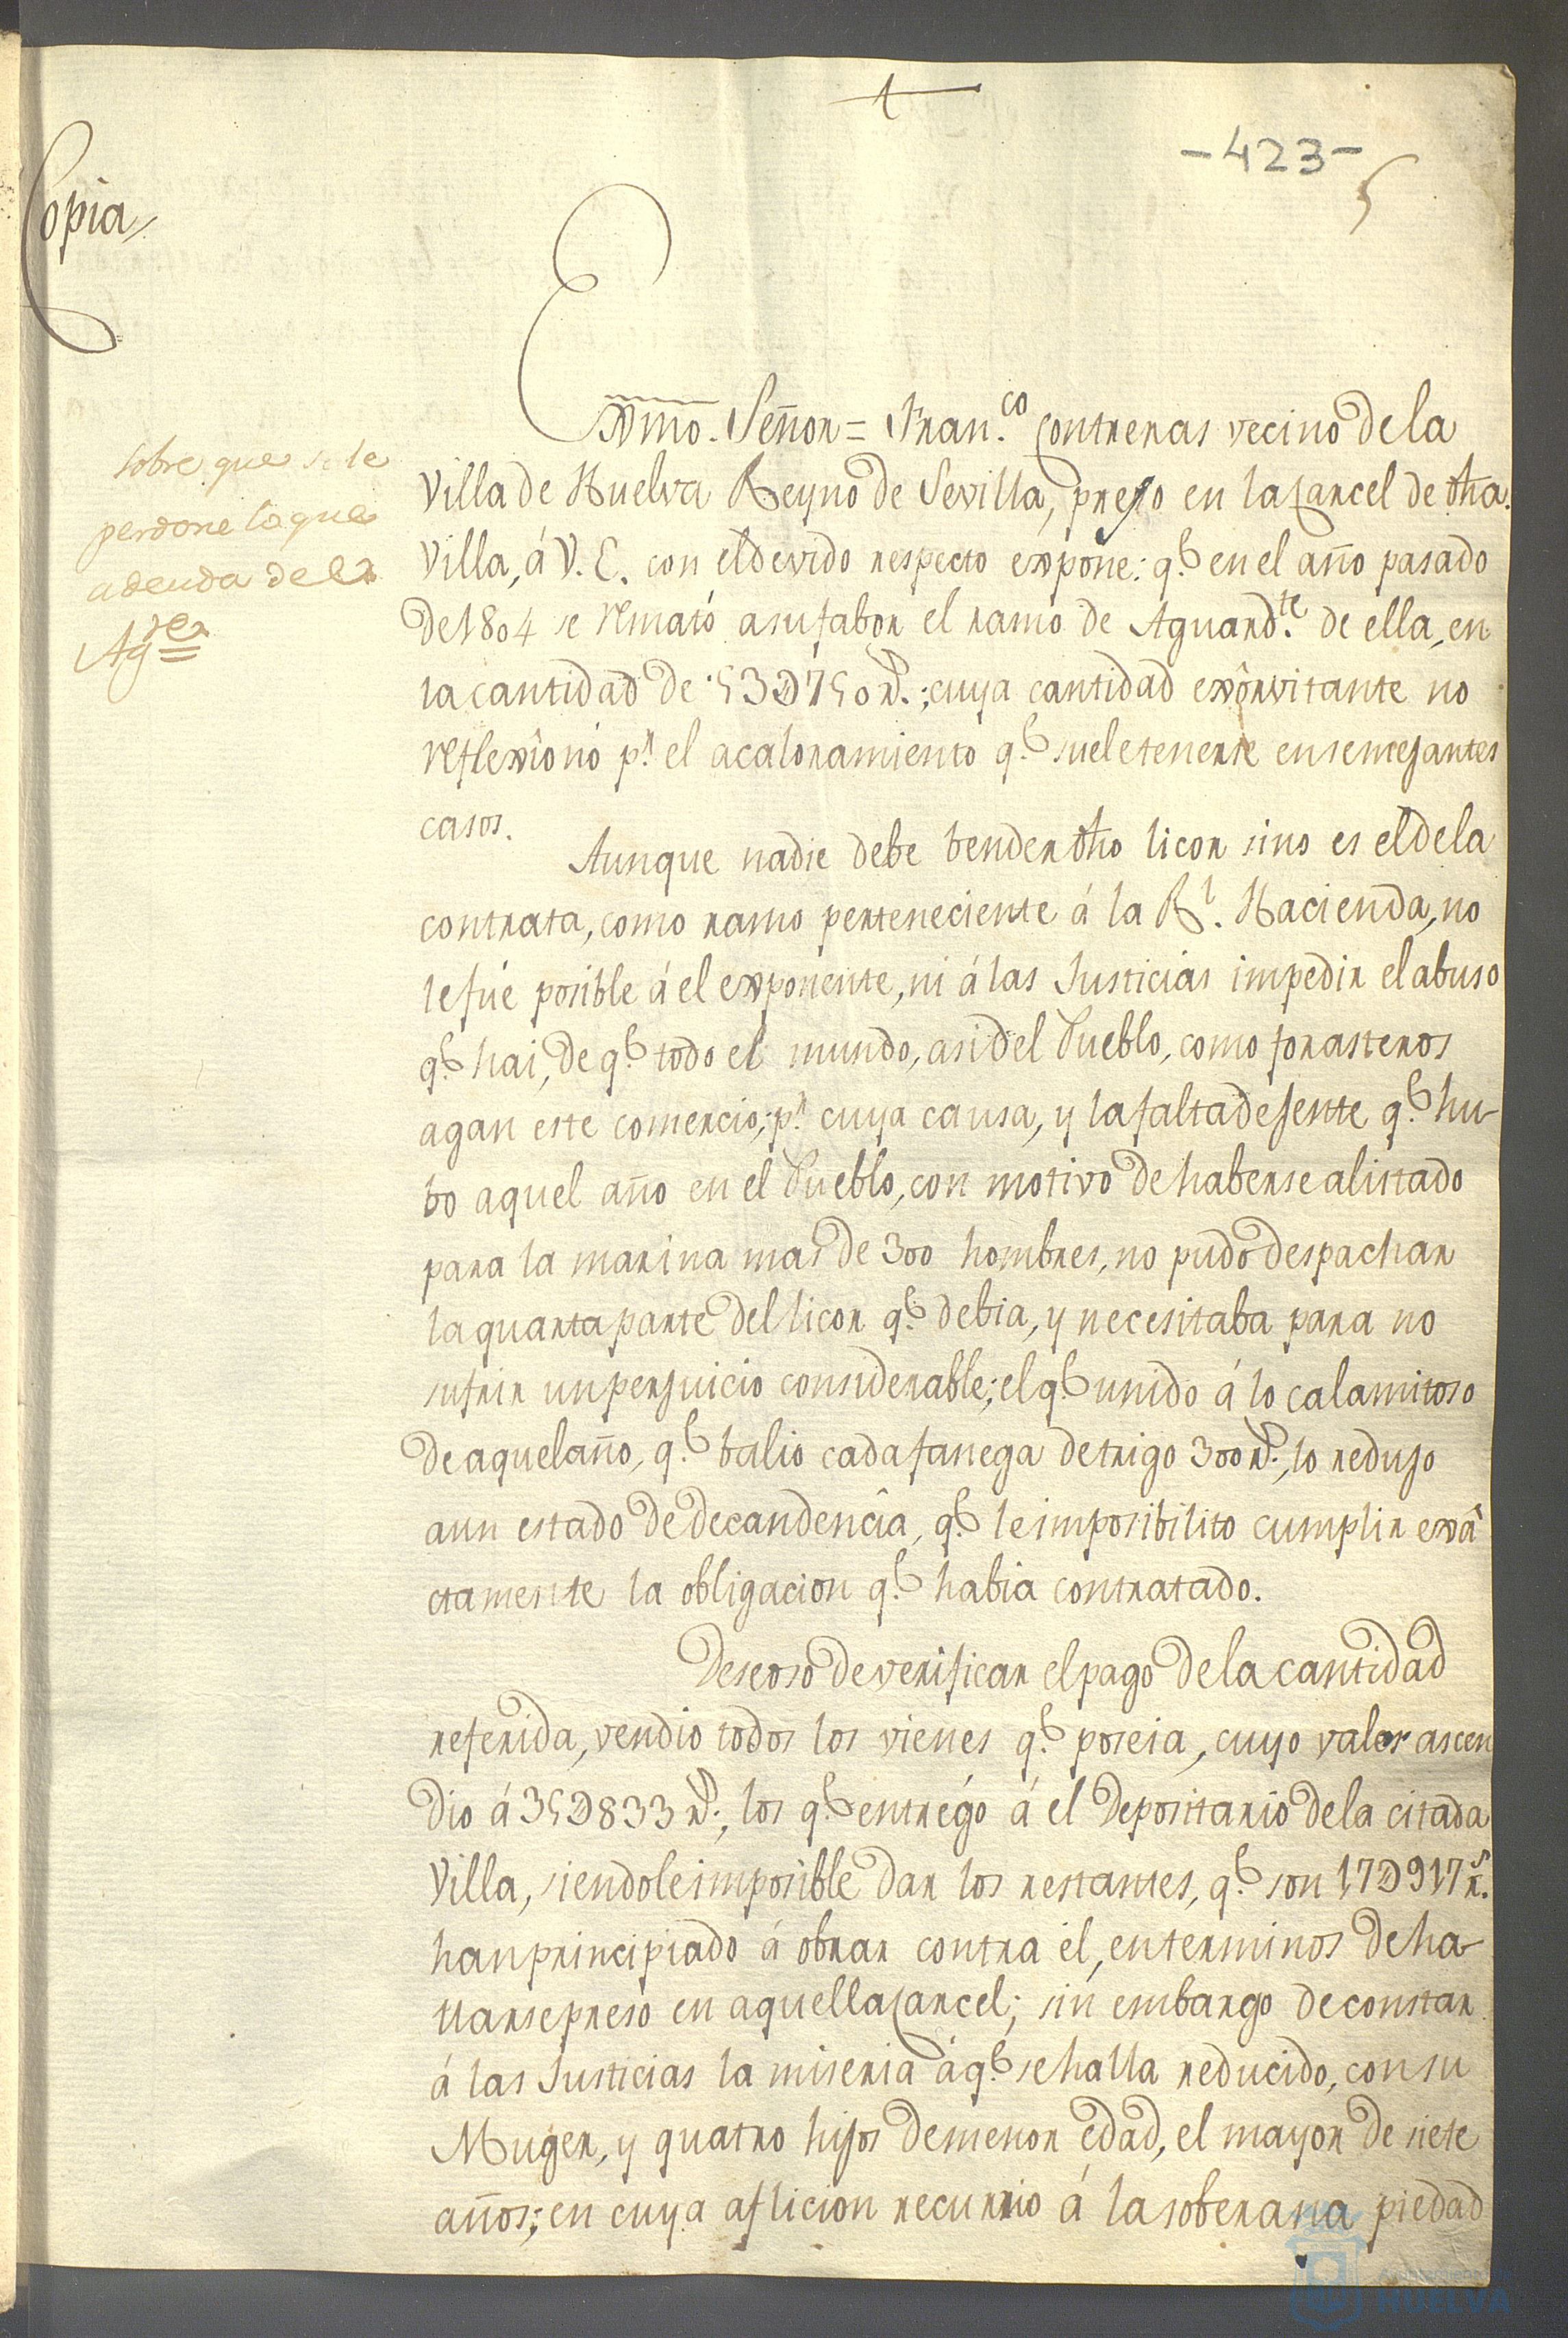 -423-
5
Copia
Exmo. Señor = Fran.co Contreras vecino de la
Villa de Huelva Reyno de Sevilla, preso en la Carcel de dha.
Villa, á V. E. con el devido respecto expone: q.e en el año pasado
de 1804 se remató a su fabor el ramo de Aguard.te de ella, en
la cantidad de 53D750 rs.; cuya cantidad exôrvitante no
reflexîonó p.r el acaloramiento q.e suele tenerse en semejantes
casos.
Aunque nadie debe bender dho licor sino es el de la
contrata, como ramo perteneciente á la Rl. Hacienda, no
le fué posible á el exponente, ni á las Justicias impedir el abuso
q.e hai, de q.e todo el mundo, asi del Pueblo, como forasteros
agan este comercio; p.r cuya causa, y la falta de jente q.e hu-
bo aquel año en el Pueblo, con motivo de haberse alistado
para la marina mas de 300 hombres, no pudo despachar
la quarta parte del licor q.e debia, y necesitaba para no
sufrir un perjuicio considerable; el q.e unido á lo calamitoso
de aquel año, q.e balio cada fanega de trigo 300 rs., lo redujo
a un estado de decandencîa, q.e le imposibilito cumplir exâ
ctamente la obligacion q.e habia contratado.
Deseoso de verificar el pago de la cantidad
referida, vendio todos los vienes q.e poseia, cuyo valor ascen
dio á 35D833 rs.; los q.e entregó á el Depositario de la citada
Villa, siendole imposible dar los restantes, q.e son 17D917 rs.
han principiado á obrar contra él, en terminos de ha-
llarse preso en aquella Carcel; sin embargo de constar
á las Justicias la miseria á q.e se halla reducido, con su
Muger, y quatro hijos de menor edad, el mayor de siete
años; en cuya aflicion recurrio á la soberana piedad
sobre que se le
perdone lo que
adeuda del
Ag.te
HUELVA